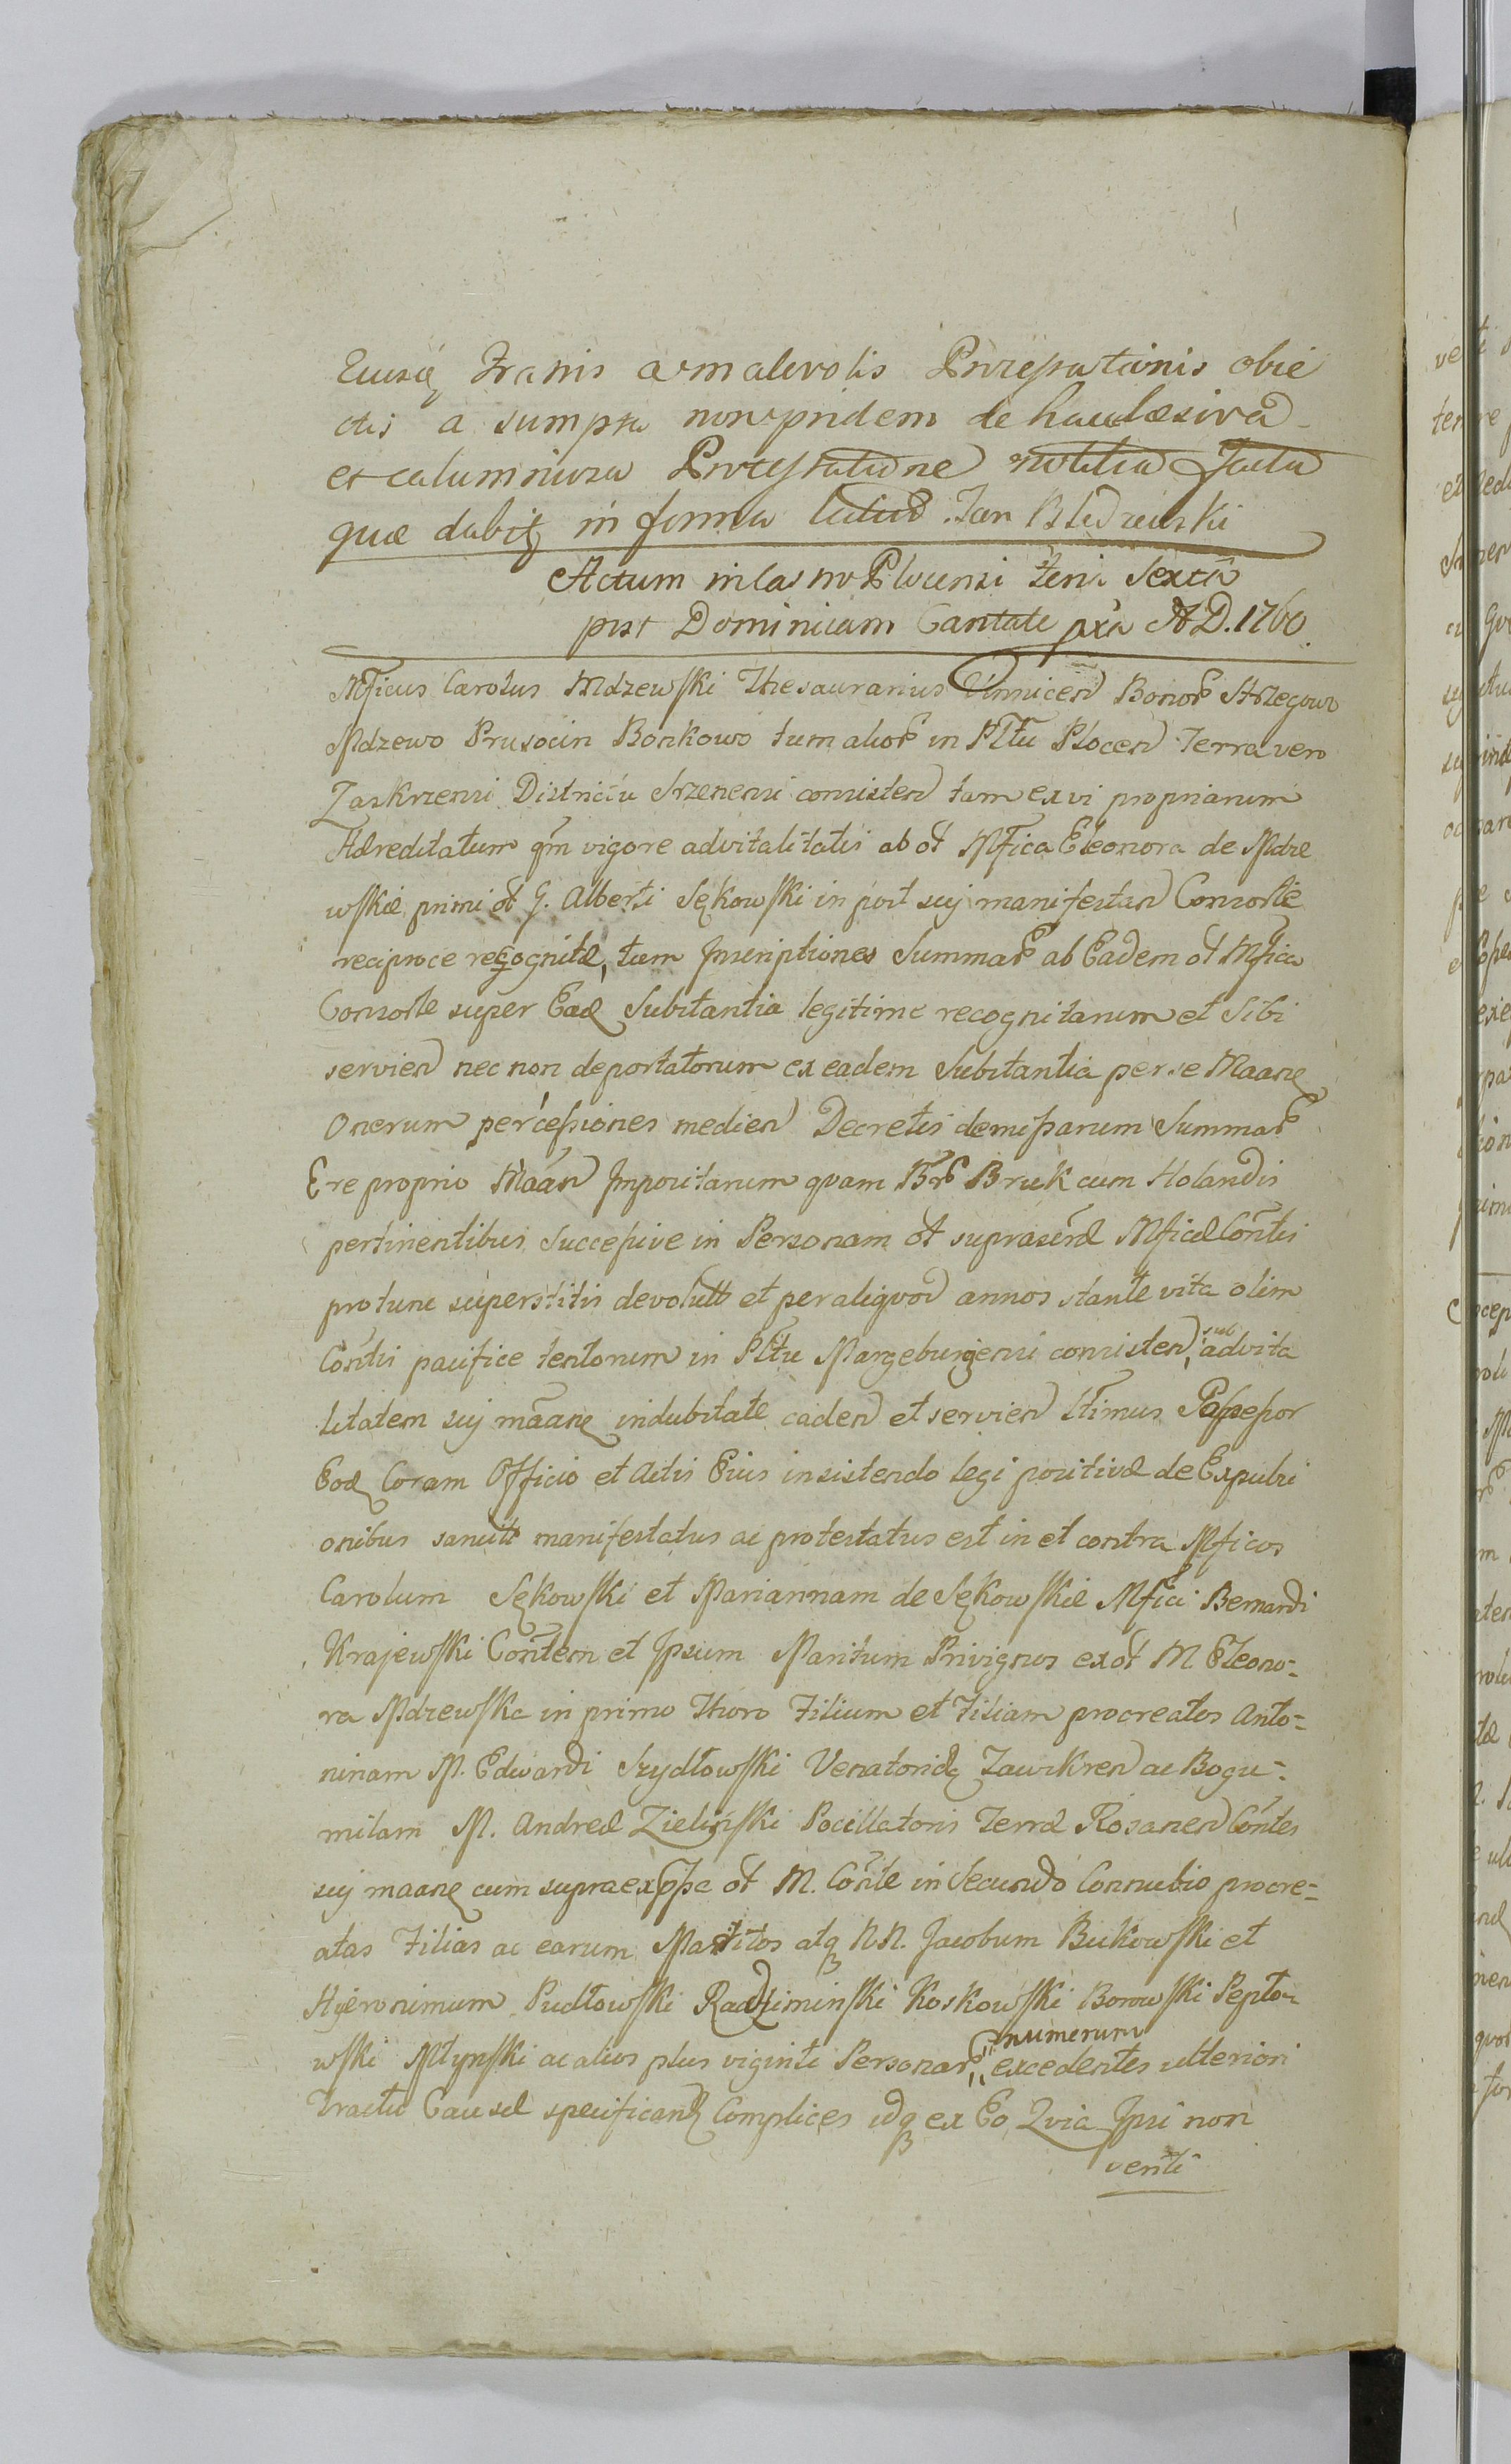 Eiusq Iranis a malevolis Protestationis obie
ctis a sumpta non pridem de
et calumniosa Protestatione notitia facta
quæ dabit in forma latius. Jan Bledzewski
Actum in Castro Plocensi feria Sexta
post Dominicam Cantate pxa A D. 1760.
Mficus Carolus Mdzewski Thesaurarius Bonor Strzegowo
Mdzewo Prusocin Bonkowo tum alior in Pltu Plocen Terra vero
Zaskrzensi Districtu Srzenensi consisten tam ex vi propriarum
Hæreditatum qm vigore advitalitatis ab ol Mfica Eleonora de Mdze
wskie primi ol G. Alberti Sękowski in post suj manifestan Consorte
reciproce recognitæ, tum Inscriptiones Summar ab Eadem ol Mfica
Consorte super Ead Substantia legitime recognitarum et Sibi
servien nec non deportatorum ex eadem Substantia per se Maane
Onerum percessiones medien Decretis demissarum Summar
Ere proprio Maan Impositarum quam Bruk cum Holandis
pertinentibus Successive in Personam ol Mficæ Contis
protunc superstitis devolut et per aliquod annos stante vita olim
Contis pacifice tentorum in Pltu Margeburgensi consisten, sub advita
litatem suj maane indubitate caden et servien ltimus Possessor
Eoq Coram Officio et Actis Eius insistendo legi positivæ de Expulsi
onibus sancit manifestatus ac protestatus est in et contra Mficos
Carolum Sękowski et Mariannam de Sękowskie Mfici Bernardi
Krajewski Contem et Ipsum Maritum Privignos ex ol M. Eleono=
ra Mdzewska in primo Thoro Filium et Filiam procreatos Anto=
ninam M. Edwardi Szydłowski Venatorid Zawkren ac Bogu=
milam M. Andreæ Zieliński Pocillatoris Terræ Rosanen Contes
suj maane cum supraexppse ol M. Conte in Secundo Connubio procre=
atas Filias ac earum Maritos atq NN. Jacobum Bukowski et
Hyeronimum Pudłowski Radziminski Koskowski Borowski Pepło
wski Młynski ac alios plus viginti Personar numerum excedentes ulteriori
Tractu Causæ specificand Complices idq ex Eo, Qvia Ipsi non
venti